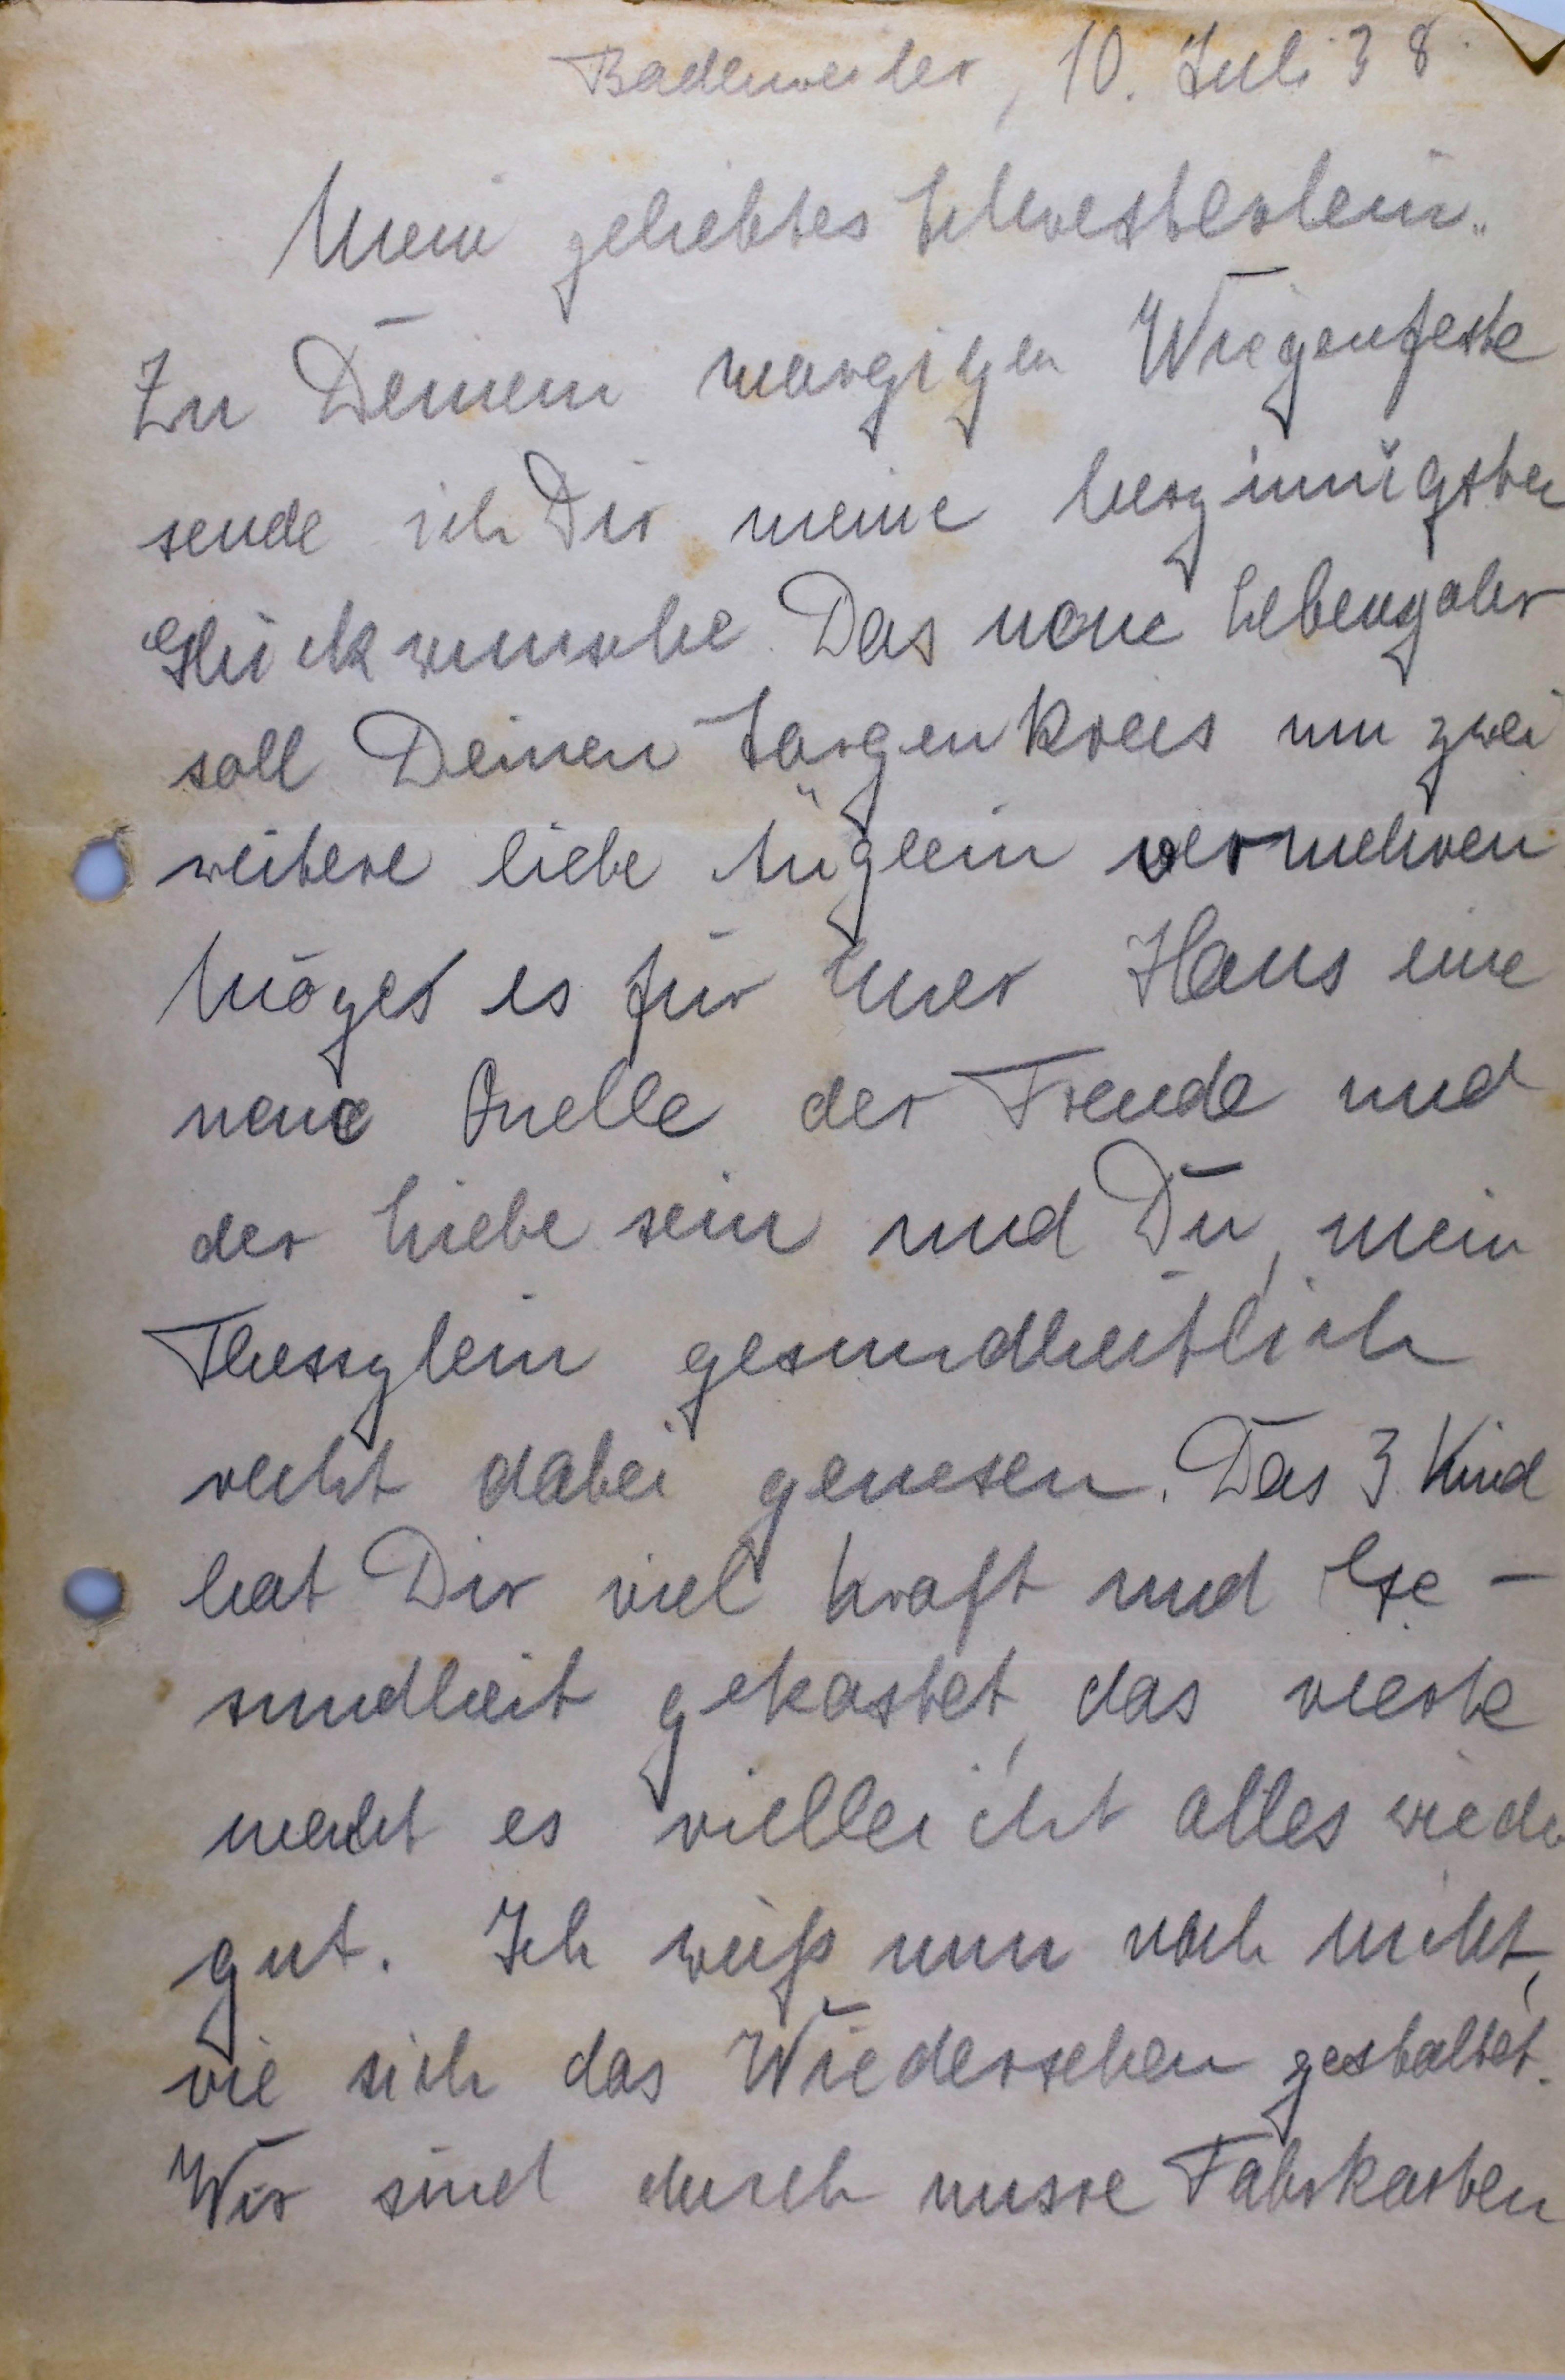 Badenweiler, 10. Juli 38.
Mein geliebtes Schwesterlein.
Zu Deinem morgigen Wiegenfeste
sende ich Dir meine herzinnigsten
Glückwünsche. Das neue Lebensjahr
soll Deinen Sorgenkreis um zwei
weitere liebe Äuglein vermehren
Möges es für Euer Haus eine
neue Quelle der Freude und
der Liebe sein und Du, mein
Thessylein gesundheitlich
recht dabei genesen. Das 3. Kind
hat Dir viel Kraft und Ge-
sundheit gekostet, das vierte
macht es vielleicht alles wieder
gut. Ich weiß nun noch nicht,
wie sich das Wiedersehen gestaltet.
Wir sind durch unsre Fahrkarten